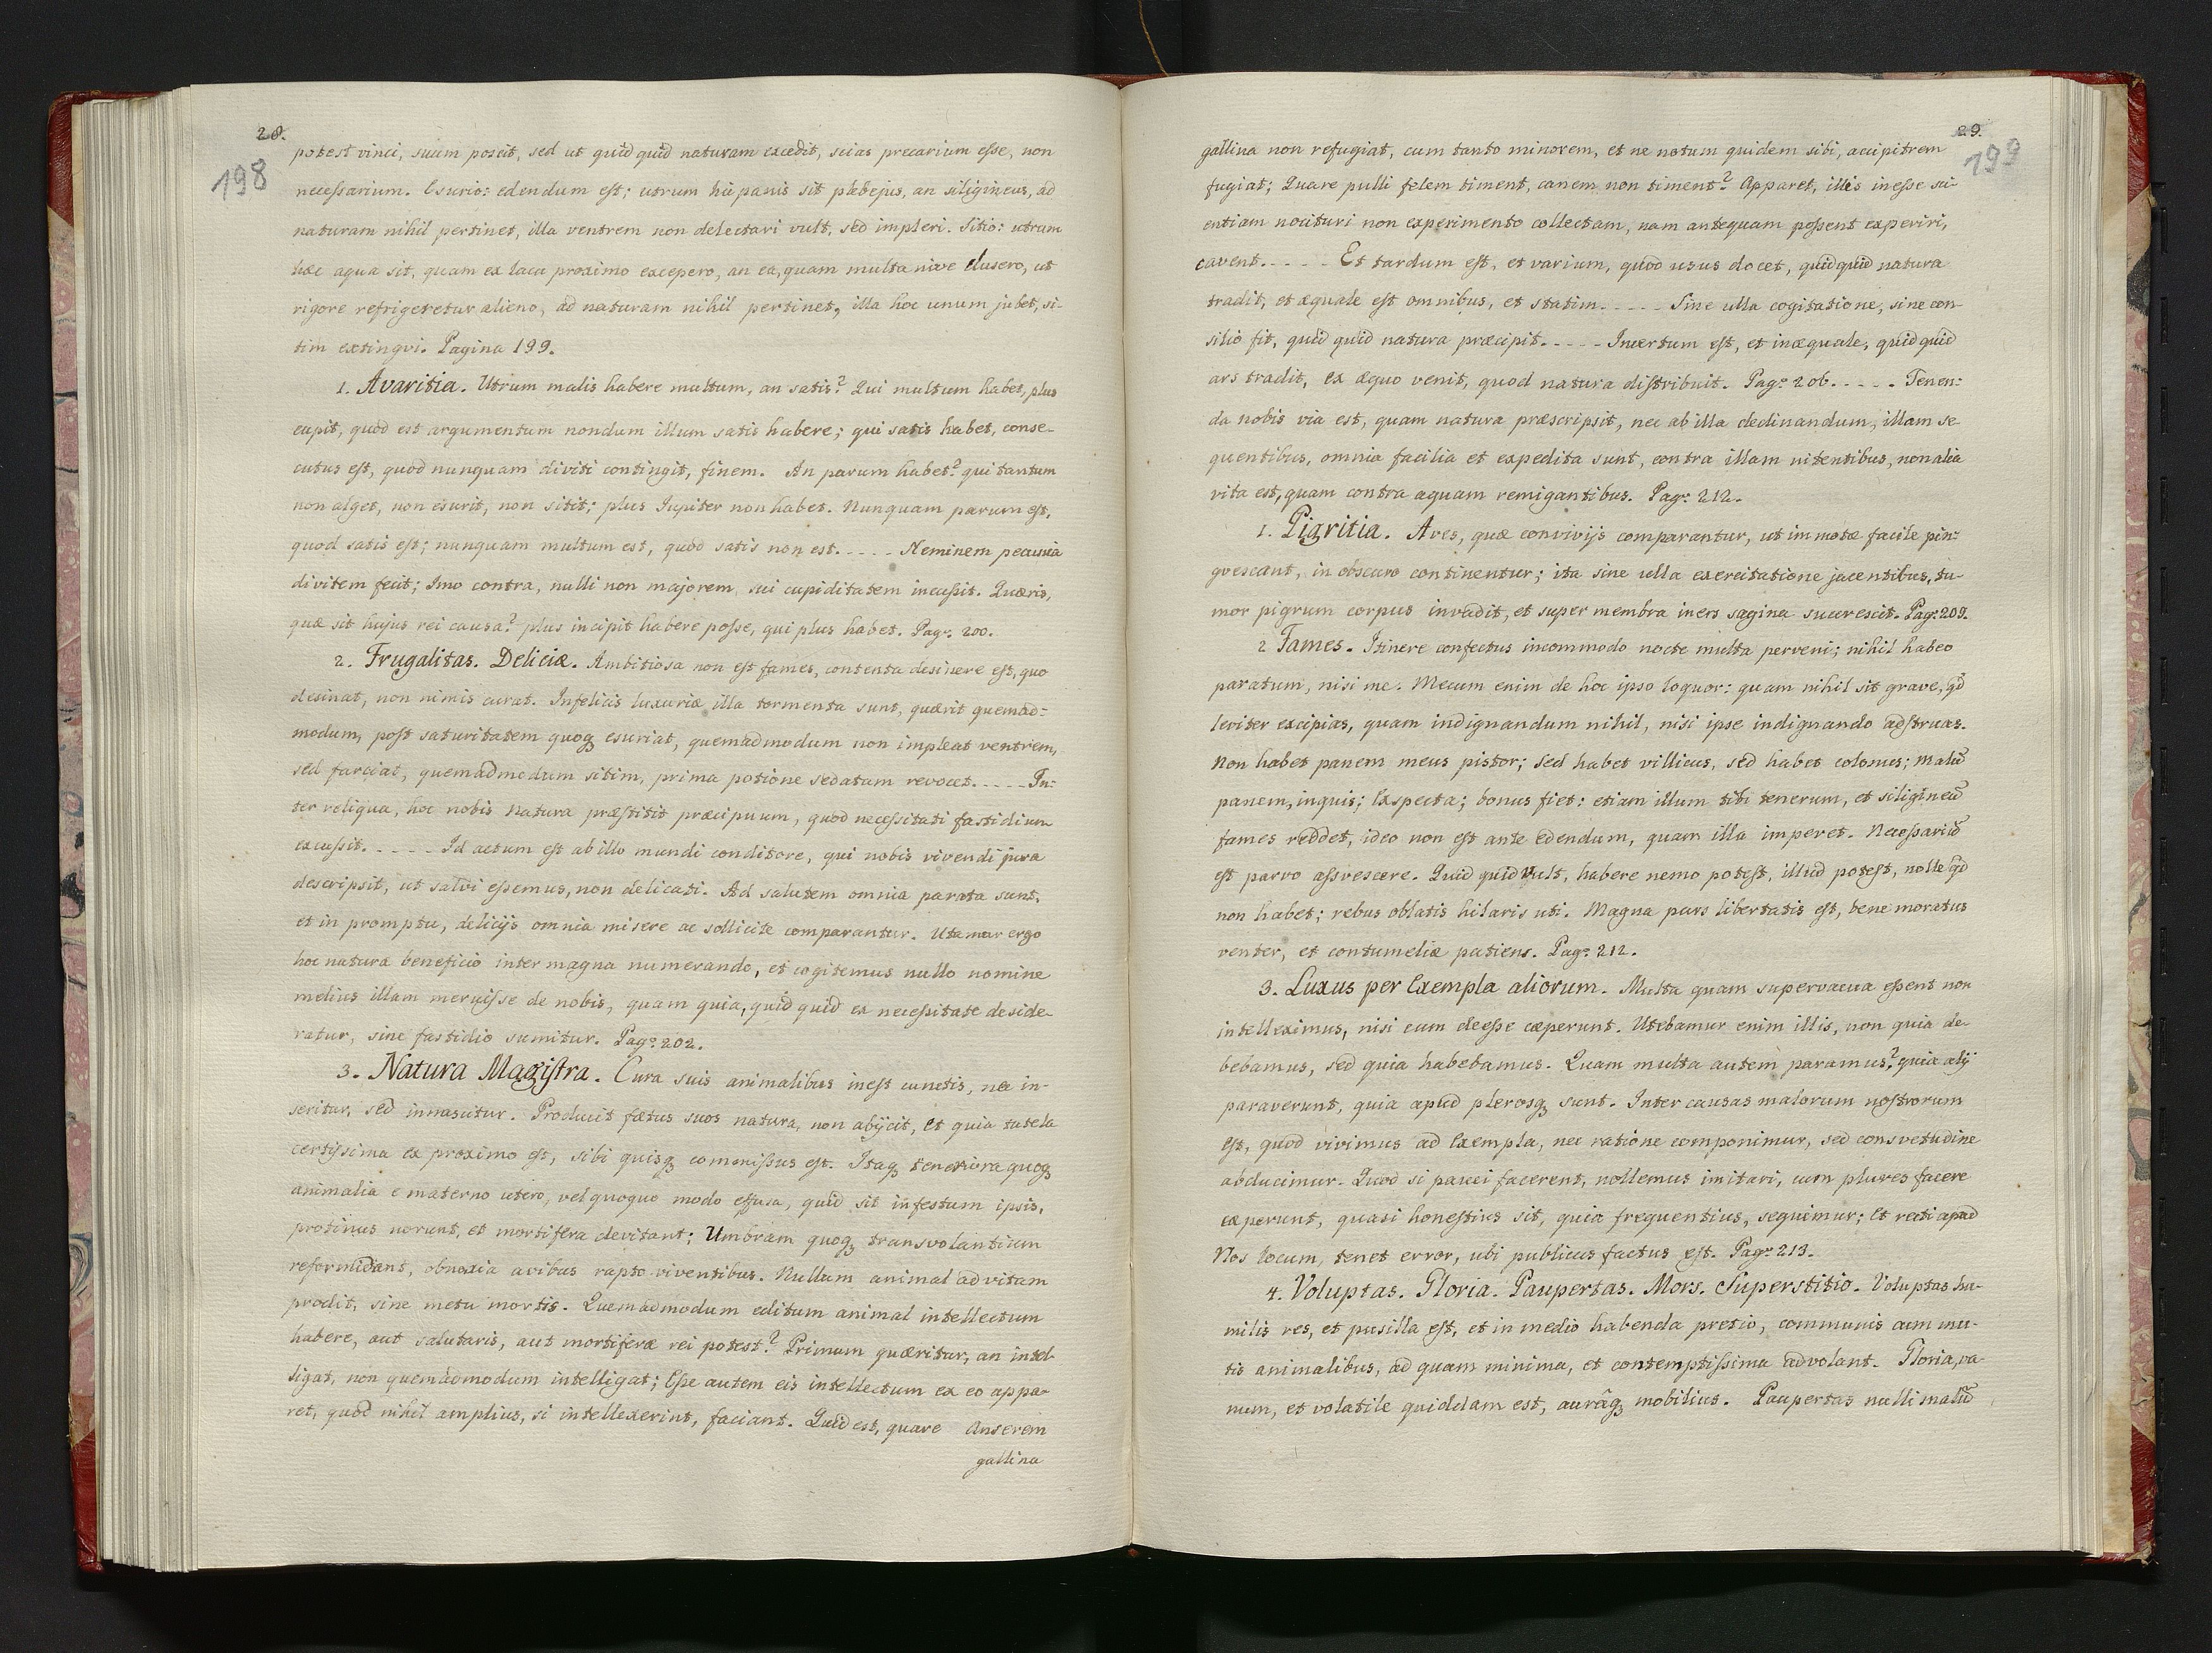 28.
198
potest vinci, suum poscit, sed ut quid quid naturam excedit, scias precarium esse, non
necessarium. Esurio: edendum est; utrum hic panis sit plebejus, an siligineus, ad
naturam nihil pertinet, illa ventrem non delectari vult, sed impleri. Sitio: utrum
hæc aqua sit, quam ex lacu proximo excepero, an ea, quam multa nive clusero, ut
rigore refrigeretur alieno, ad naturam nihil pertinet, illa hoc unum jubet, si-
tim extingvi. Pagina 199.
1. Avaritia. Utrum malis habere multum, an satis? Qui multum habet, plus
cupit, quod est argumentum nondum illum satis habere; qui satis habet, conse-
cutus est, quod nunquam diviti contingit, finem. An parum habet? qui tantum
non alget, non esurit, non sitit; plus Jupiter non habet. Nunquam parum est,
quod satis est; nunquam multum est, quod satis non est. - - - - Neminem pecunia
divitem fecit; Imo contra, nulli non majorem sui cupiditatem incussit. Quæris,
quæ sit hujus rei causa? plus incipit habere posse, qui plus habet. Pag: 200.
2. Frugalitas. Deliciæ. Ambitiosa non est fames, contenta desinere est, quo
desinat, non nimis curat. Infelicis luxuriæ illa tormenta sunt, quærit quemad:
modum, post saturitatem quoqꝫ esuriat, quemadmodum non impleat ventrem,
sed farciat, quemadmodum sitim, prima potione sedatam revocet. - - - - - In:
ter reliqua, hoc nobis Natura præstitit præcipuum, quod necessitati fastidium
excussit. - - - - - Id actum est ab illo mundi conditore, qui nobis vivendi jura
descripsit, ut salvi essemus, non delicati. Ad salutem omnia parata sunt,
et in promptu, delicijs omnia misere ac sollicite comparantur. Utamur ergo
hoc naturæ beneficio inter magna numerando, et cogitemus nullo nomine
melius illam meruisse de nobis, quam quia, quid quid ex necessitate deside-
ratur, sine fastidio sumitur. Pag: 202.
3. Natura Magistra. Cura suis animalibus inest cunctis, nec in-
seritur, sed innascitur. Producit fætus suos natura, non abijcit, et quia tutela
certissima ex proximo est, sibi quisqꝫ commissus est. Itaqꝫ teneriora quoqꝫ
animalia e materno utero, vel quoquo modo effusa, quid sit infestum ipsis,
protinus norunt, et mortifera devitant; Umbram quoqꝫ transvolantium
reformidant, obnoxia avibus rapto viventibus. Nullum animal ad vitam
prodit, sine metu mortis. Quemadmodum editum animal intellectum
habere, aut salutaris, aut mortiferæ rei potest? Primum quæritur, an intel-
ligat, non quemadmodum intelligat; Esse autem eis intellectum ex eo appa-
ret, quod nihil amplius, si intellexerint, faciant. Quid est, quare Anserem
gallina
29.
199
gallina non refugiat, cum tanto minorem, et ne notum quidem sibi, accipitrem
fugiat; Quare pulli felem timent, canem non timent? Apparet, illis inesse sci-
entiam nocituri non experimento collectam, nam antequam possent experiri,
cavent. - - - - - Et tardum est, et varium, quod usus docet, quid quid natura
tradit, et æquale est omnibus, et statim. - - - - - Sine ulla cogitatione, sine con-
silio fit, quid quid natura præcipit. - - - - - Incertum est, et inæquale, quid quid
ars tradit, ex æquo venit, quod natura distribuit. Pag: 206. - - - - - Tenen:
da nobis via est, quam natura præscripsit, nec ab illa declinandum, illam se
quentibus, omnia facilia et expedita sunt, contra illam nitentibus, non alia
vita est, quam contra aquam remigantibus. Pag: 212.
1. Pigritia. Aves, quæ convivijs comparantur, ut immotæ facile pin:
gvescant, in obscuro continentur; ita sine ulla exercitatione jacentibus, tu-
mor pigrum corpus invadit, et super membra iners sagina succrescit. Pag: 209.
2 Fames. Itinere confectus incommodo nocte multa perveni; nihil habeo
paratum, nisi me. Mecum enim de hoc ipso loquor: quam nihil sit grave, qd
leviter excipias, quam indignandum nihil, nisi ipse indignando adstruas.
Non habet panem meus pistor; sed habet villicus, sed habet colonus; malū
panem, inquis; Exspecta; bonus fiet: etiam illum tibi tenerum, et siligineū
fames reddet, ideo non est ante edendum, quam illa imperet. Necessariū
est parvo assvescere. Quid quid vult, habere nemo potest, illud potest, nolle qd
non habet; rebus oblatis hilaris uti. Magna pars libertatis est, bene moratus
venter, et contumeliæ patiens. Pag: 212.
3. Luxus per Exempla aliorum. Multa quam supervacua essent non
intelleximus, nisi cum deesse cæperunt. Utebamur enim illis, non quia de-
bebamus, sed quia habebamus. Quam multa autem paramus? quia alij
paraverunt, quia apud plerosqꝫ sunt. Inter causas malorum nostrorum
est, quod vivimus ad Exempla, nec ratione componimur, sed consvetudine
abducimur. Quod si pauci facerent, nollemus imitari, cum plures facere
cæperunt, quasi honestius sit, quia frequentius, sequimur; Et recti apud
Nos locum, tenet error, ubi publicus factus est. Pag: 213.
4. Voluptas. Gloria. Paupertas. Mors. Superstitio. Voluptas hu-
milis res, et pusilla est, et in medio habenda pretio, communis cum mu-
tis animalibus, ad quam minima, et contemptissima advolant. Gloria, va-
num, et volatile quiddam est, aurâqꝫ mobilius. Paupertas nulli malū